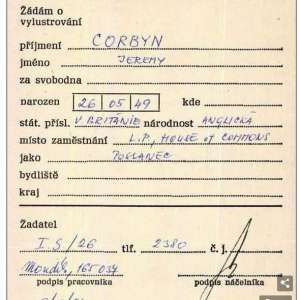 Žádám o
vylustrování
příjmení CORBYN
jméno JEREMY
za svobodna
narozen 26 05 49 kde
stát. přísl. V. BRITÁNIE národnost ANGLICKÁ
místo zaměstnání L.P., HOUSE of COMMONS
jako POSLANEC
bydliště
kraj
Žadatel
I. S/26 tlf. 2380 č. j.
165 034
podpis pracovníka podpis náčelníka